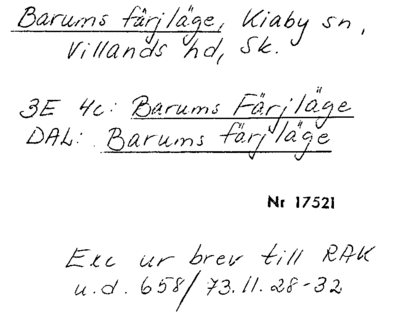 Barums färjläge, Kiaby sn,
Villands hd, Sk.
3E 4c: Barums Färjläge
DAL: Barums färjläge
Nr 17521
Exc ur brev till RAK
u.d. 658/73.11.28-32